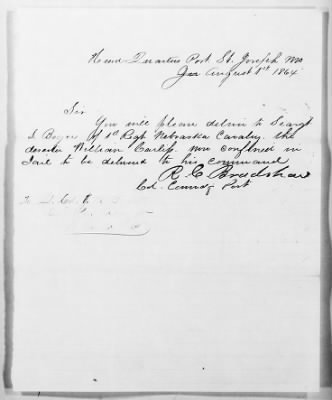 Head Quarters Post St. Joseph Mo
August 1st 1864
Sir
You will please deliver to Seargt
of 1st Regt Nebraska Cavalry. the
deserter William now confined in
Jail to be delivered to his command
R. C. Bradshaw
Col. Commdg Post